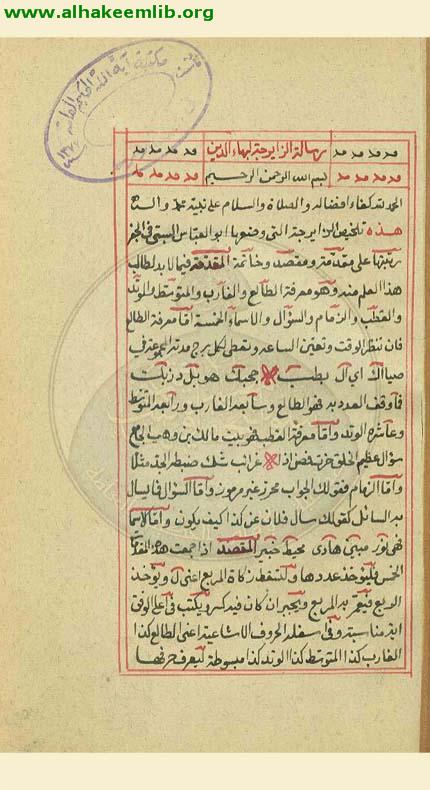 www.alhakeemlib.org
مكتبة آية الله الحكيم العامة
رسالة الزايرجة لبهاء الدين
بسم الله الرحمن الرحيم
الحمد لله كفاء افضاله والصلاة والسلام على نبيه محمد وآله
هذه تلخيص الزايرجة التي وضعها ابو العباس السبتي في الجفر
رتبتها على مقدمة ومقصد وخاتمة المقدمة فيما لابد لطالب
هذا العلم منه وهو معرفة الطالع والغارب والمتوسط والوتد
والقطب والزمام والسؤال والاسماء الخمسة اما معرفة الطالع
فان تنظر الوقت وتعين الساعه وتعطى لكل برج مدته المجموعة في
فما وقف العدد به فهو الطالع وسابعه الغارب ورابعه المتوسط
وعاشره الوتد واما معرفة القطب فهو بيت مالك بن وهيب
سؤال عظيم الخلق حزت فصن اذا غرائب شك ضبطه الجد مثلا
واما الزمام فقولك الجواب محرز غير مرموز واما السؤال فما يسال
به السائل كقولك سال فلان عن كذا كيف يكون واما الاسما
فهي نور مبين هادى محيط خبير المقصد اذا جمعت هذه المقدمات
الخمس فليؤخذ عددها وليسقط زكاة المربع اعنى ل ويؤخذ
الربع فيعمر به المربع ويجبر ان كان فيه كسر ويكتب في اعلى الوفق
اية مناسبة وفي اسفله الحروف الاثنا عشر اعنى الطالع كذا
الغارب كذا المتوسط كذا الوتد كذا مبسوطة ليعرف حرفها